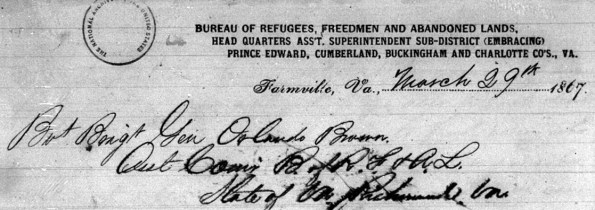 THE NATIONAL ARCHIVES UNITED STATES
BUREAU OF REFUGEES, FREEDMEN AND ABANDONED LANDS,
HEAD QUARTERS ASS'T. SUPERINTENDENT SUB-DISTRICT (EMBRACING)
PRINCE EDWARD, CUMBERLAND, BUCKINGHAM AND CHARLOTTE CO'S., VA.
Farmville, Va., March 29th 1867.
Bvt Brigt Gen Orlando Brown.
Asst Comr B of R. F & A. L.
State of Va Richmond Va.